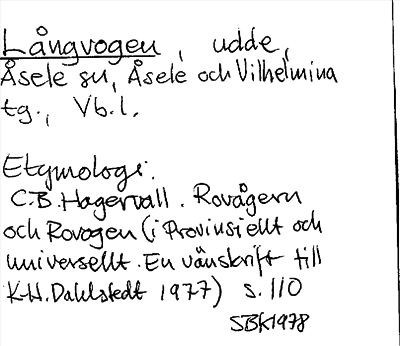 Långvogen, udde,
Åsele sn, Åsele och Vilhelmina
tg., Vb.l.
Etymologi.
C.B. Hagervall. Rovågern
och Rovogen (i Provinsiellt och
universellt. En vänskrift till
K-H. Dahlstedt 1977) s. 110
SBK 1978